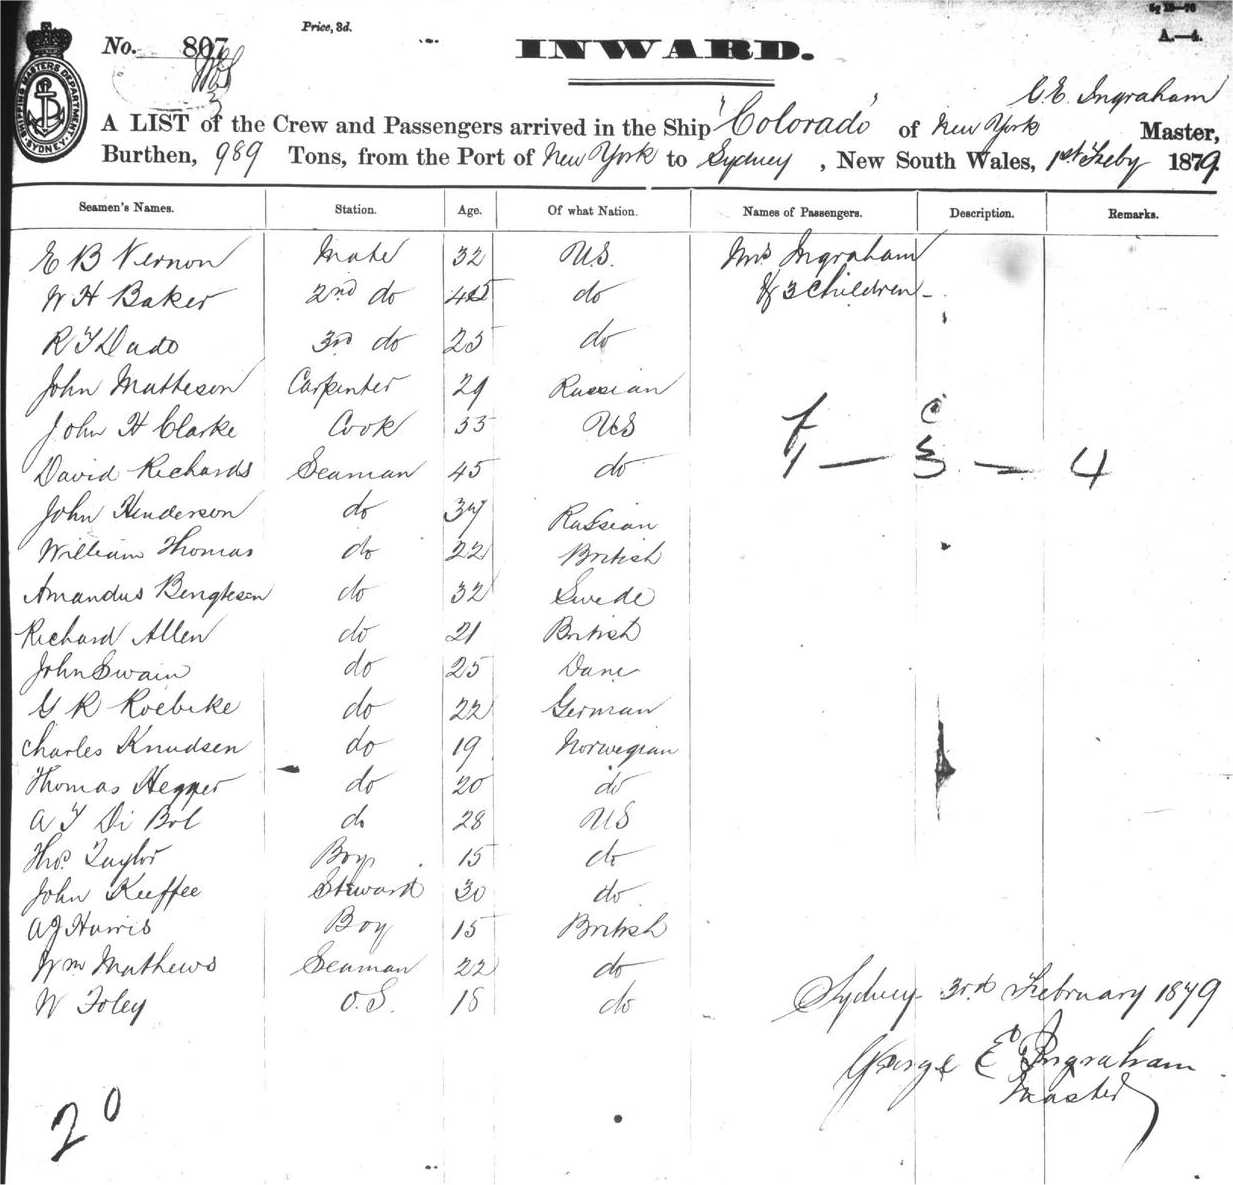 Price, 3d.
A.—4.
No. 807
INWARD.
SHIPPING MASTERS DEPARTMENT SYDNEY
G. E. Ingraham
A LIST of the Crew and Passengers arrived in the Ship "Colorado" of New York Master,
Burthen, 989 Tons, from the Port of New York to Sydney, New South Wales, 1st Feby 1879.
Seamen's Names. Station. Age. Of what Nation. Names of Passengers. Description. Remarks.
E B Vernon Mate 32 U.S. Mrs Ingraham
W H Baker 2nd do 45 do & 3 Children
R T Dado 3rd do 25 do
John Matteson Carpenter 29 Russian
John H Clarke Cook 33 US F C
David Richards Seaman 45 do 1 — 3 — 4
John Henderson do 37 Russian
William Thomas do 22 British
Amandus Bengtson do 32 Swede
Richard Allen do 21 British
John Swain do 25 Dane
G R Roebike do 22 German
Charles Knudsen do 19 Norwegian
Thomas Hegger do 20 do
A T Di Bol do 28 US
Thos. Taylor Boy 15 do
John Keeffee Steward 30 do
A J Harris Boy 15 British
Wm Mathews Seaman 22 do
W Foley O.S. 18 do
Sydney 3rd February 1879
George E Ingraham
Master
20